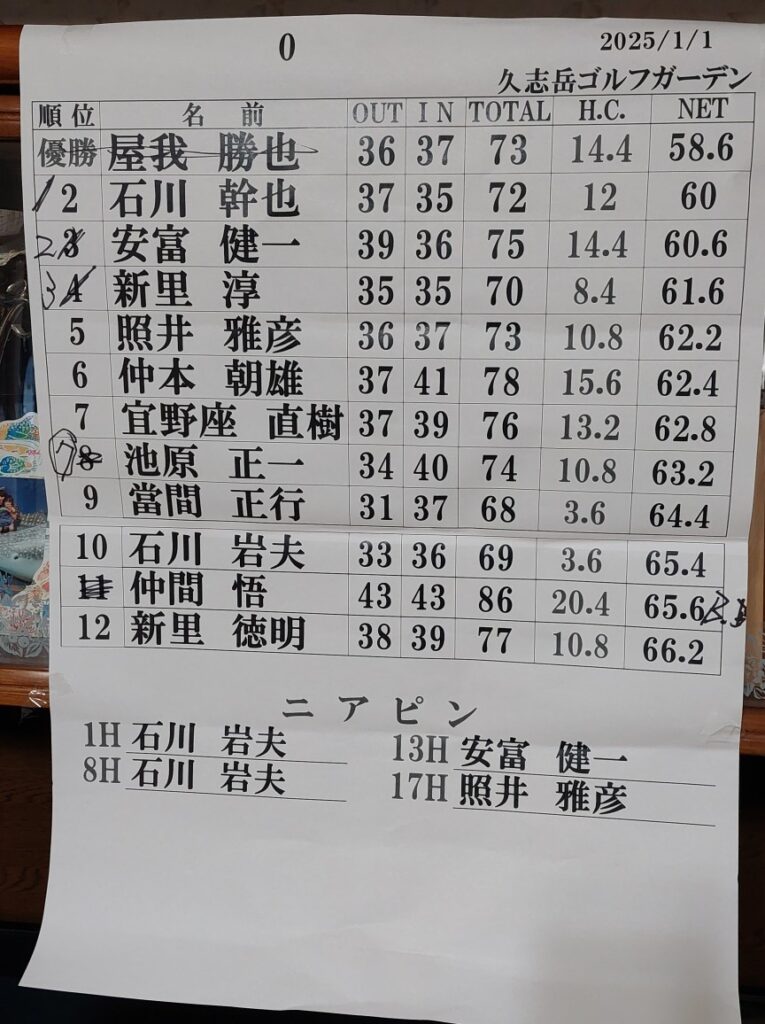 0
2025/1/1
久志岳ゴルフガーデン
順位 名前 OUT IN TOTAL H.C. NET
優勝 屋我 勝也 36 37 73 14.4 58.6
1 2 石川 幹也 37 35 72 12 60
2 3 安富 健一 39 36 75 14.4 60.6
3 4 新里 淳 35 35 70 8.4 61.6
5 照井 雅彦 36 37 73 10.8 62.2
6 仲本 朝雄 37 41 78 15.6 62.4
7 宜野座 直樹 37 39 76 13.2 62.8
7 8 池原 正一 34 40 74 10.8 63.2
9 當間 正行 31 37 68 3.6 64.4
10 石川 岩夫 33 36 69 3.6 65.4
11 仲間 悟 43 43 86 20.4 65.6
12 新里 徳明 38 39 77 10.8 66.2
ニアピン
1H 石川 岩夫 13H 安富 健一
8H 石川 岩夫 17H 照井 雅彦